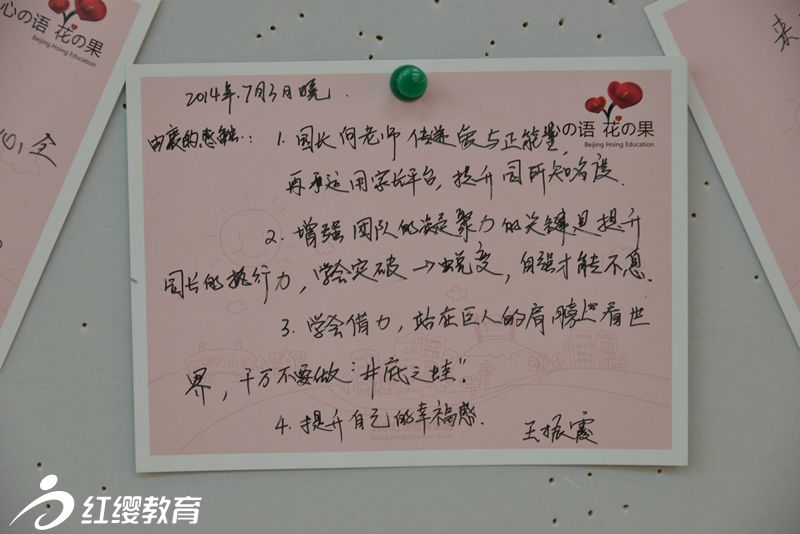 心の语 花の果
Beijing Hoing Education
来
2014年.7月3日晚.
心の语 花の果
Beijing Hoing Education
由衷的感触: 1. 园长向老师传递爱与正能量,
再运用家长平台, 提升园所知名度.
2. 增强团队的凝聚力的关键是提升
园长的执行力, 学会突破→蜕变, 自强才能不息.
3. 学会借力, 站在巨人的肩膀上看世
界, 千万不要做"井底之蛙".
4. 提升自己的幸福感.
王振霞
红缨教育